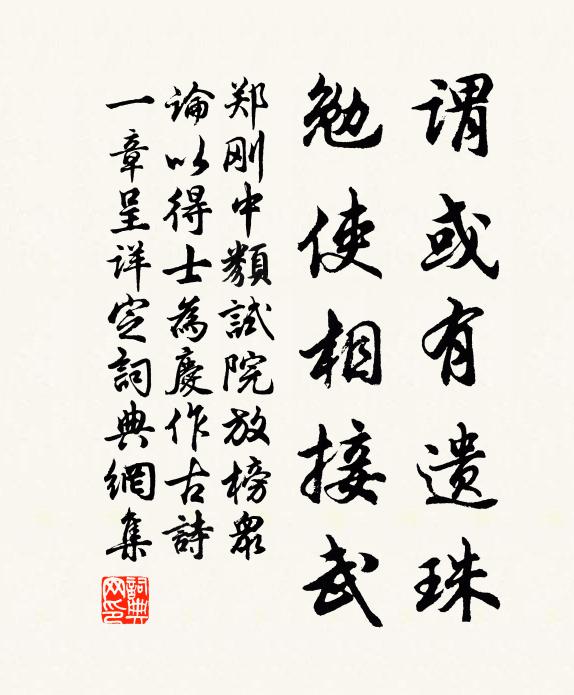 谓或有遗珠
勉使相接武
郑刚中類試院放榜衆
論以得士為慶作古詩
一章呈详定詞典網集
詞典網印